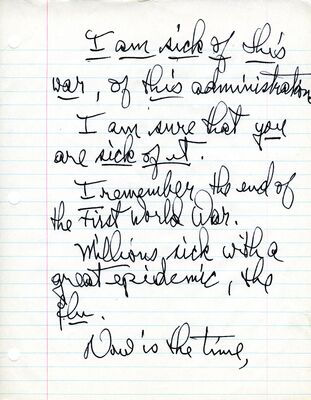 I am sick of this
war, of this administration
I am sure that you
are sick of it.
I remember the end of
the First World War.
Millions sick with a
great epidemic, the
flu.
Now is the time,